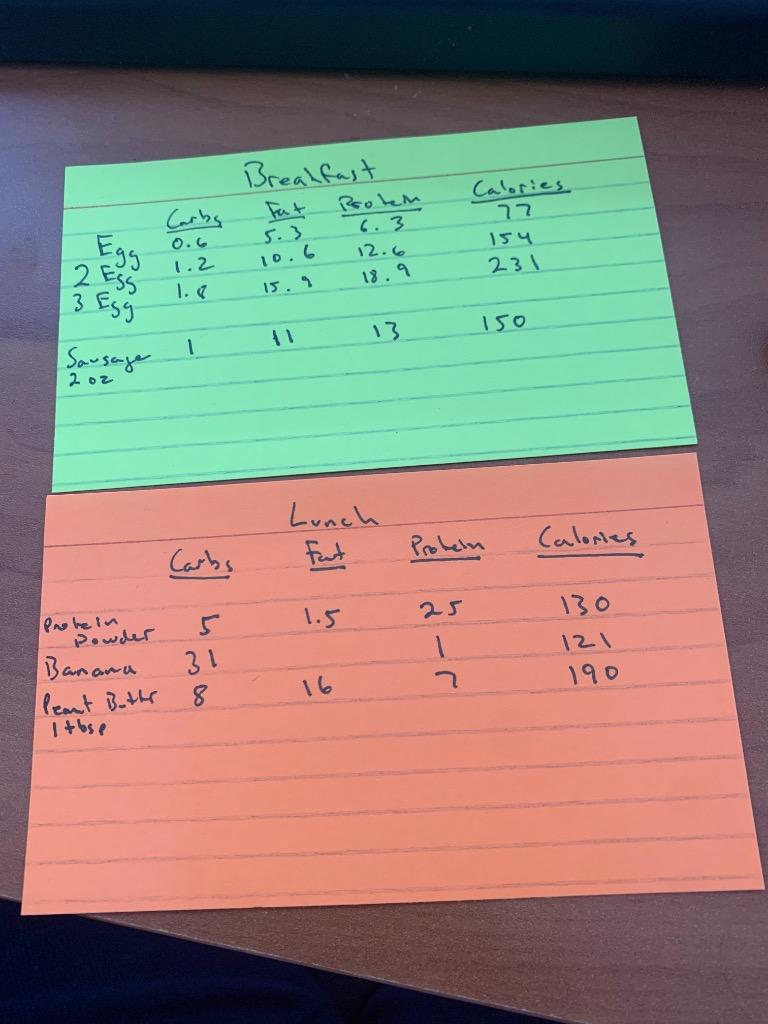 Breakfast
Carbs Fat Protein Calories
Egg 0.6 5.3 6.3 77
2 Egg 1.2 10.6 12.6 154
3 Egg 1.8 15.9 18.9 231
Sausage 1 11 13 150
2 oz
Lunch
Carbs Fat Protein Calories
Protein
Powder 5 1.5 25 130
Banana 31 1 121
Peanut Butter 8 16 7 190
1 tbsp